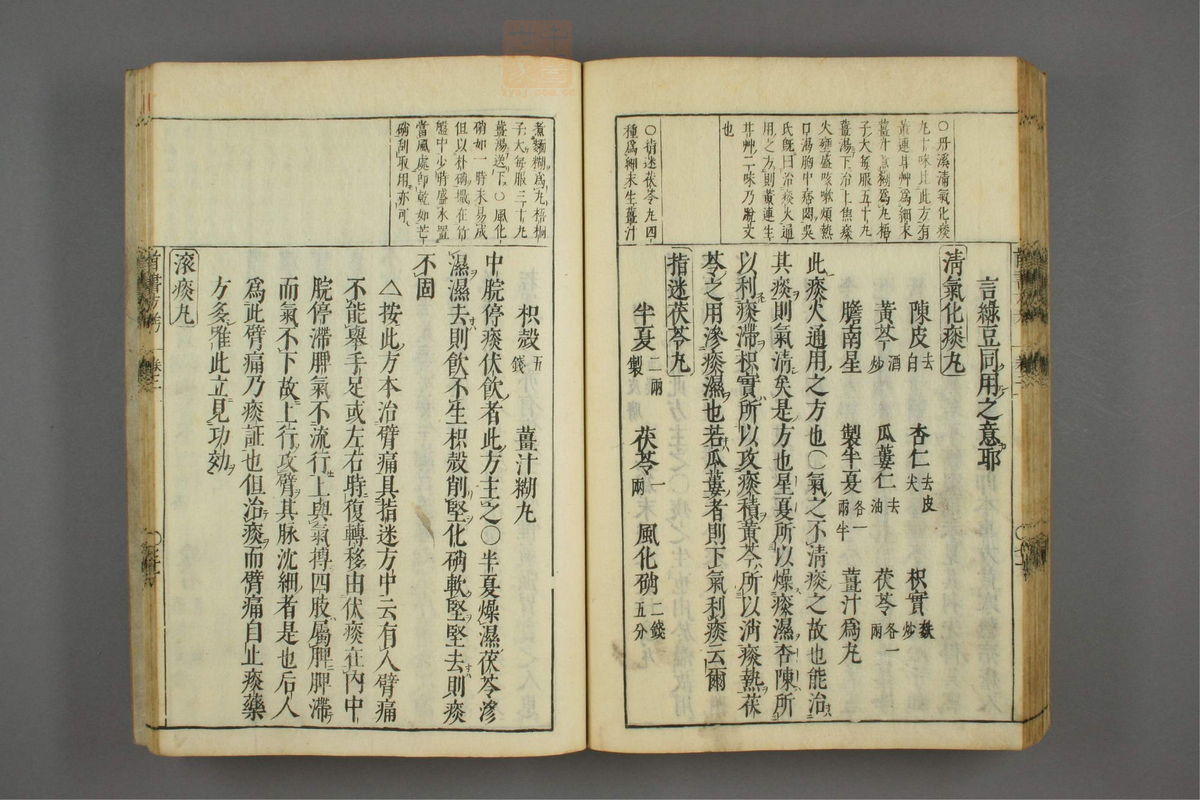 ○丹溪清氣化痰
丸十味比此方有
黄連甘艸爲細末
薑汁煮糊爲丸梧
子大每服五十丸
薑湯下治上焦痰
火壅盛咳嗽煩熱
口渴胸中痞悶吳
氏既曰治痰火通
用之方則黄連生
甘艸二味乃脫文
也
○指迷茯苓丸四
種爲細末生薑汁
言綠豆同用之意耶
清氣化痰丸
陳皮去白 杏仁去皮尖 枳實麩炒
黃芩酒炒 瓜蔞仁去油 茯苓各一兩
膽南星 製半夏各一兩半 薑汁爲丸
此痰火通用之方也○氣之不清痰之故也能治
其痰則氣清矣是方也星夏所以燥痰濕杏陳所
以利痰滯枳實所以攻痰積黃芩所以消痰熱茯
苓之用滲痰濕也若瓜蔞者則下氣利痰云爾
指迷茯苓丸
半夏二兩製 茯苓一兩 風化硝二錢五分
煮麵糊爲丸梧桐
子大每服三十丸
薑湯送下○風化
硝如一時未易成
但以朴硝撒在竹
盤中少時盛水置
當風處即乾如芒
硝刮取用亦可
枳殼五錢 薑汁糊丸
中脘停痰伏飲者此方主之○半夏燥濕茯苓滲
濕濕去則飲不生枳殼削堅化硝軟堅堅去則痰
不固
△按此方本治臂痛具指迷方中云有人臂痛
不能舉手足或左右時復轉移由伏痰在內中
脘停滯脾氣不流行上與氣搏四肢屬脾脾滯
而氣不下故上行攻臂其脉沈細者是也后人
爲此臂痛乃痰証也但治痰而臂痛自止痰藥
方多唯此立見功効
滾痰丸
首書方考 卷三